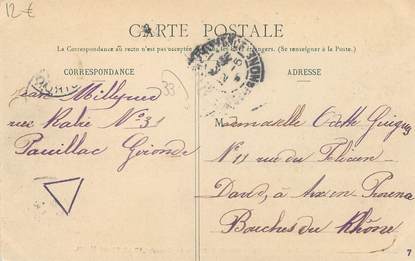 12 €
CARTE POSTALE
La Correspondance au recto n'est pas acceptée par tous les pays étrangers. (Se renseigner à la Poste.)
CORRESPONDANCE
ADRESSE
33
Jean Milleyued
rue Ratie N° 31
Pauillac Gironde
Mademoiselle Odette
N° 11 rue du Félicien
David, à Aix en Provena
Bouches du Rhône
7